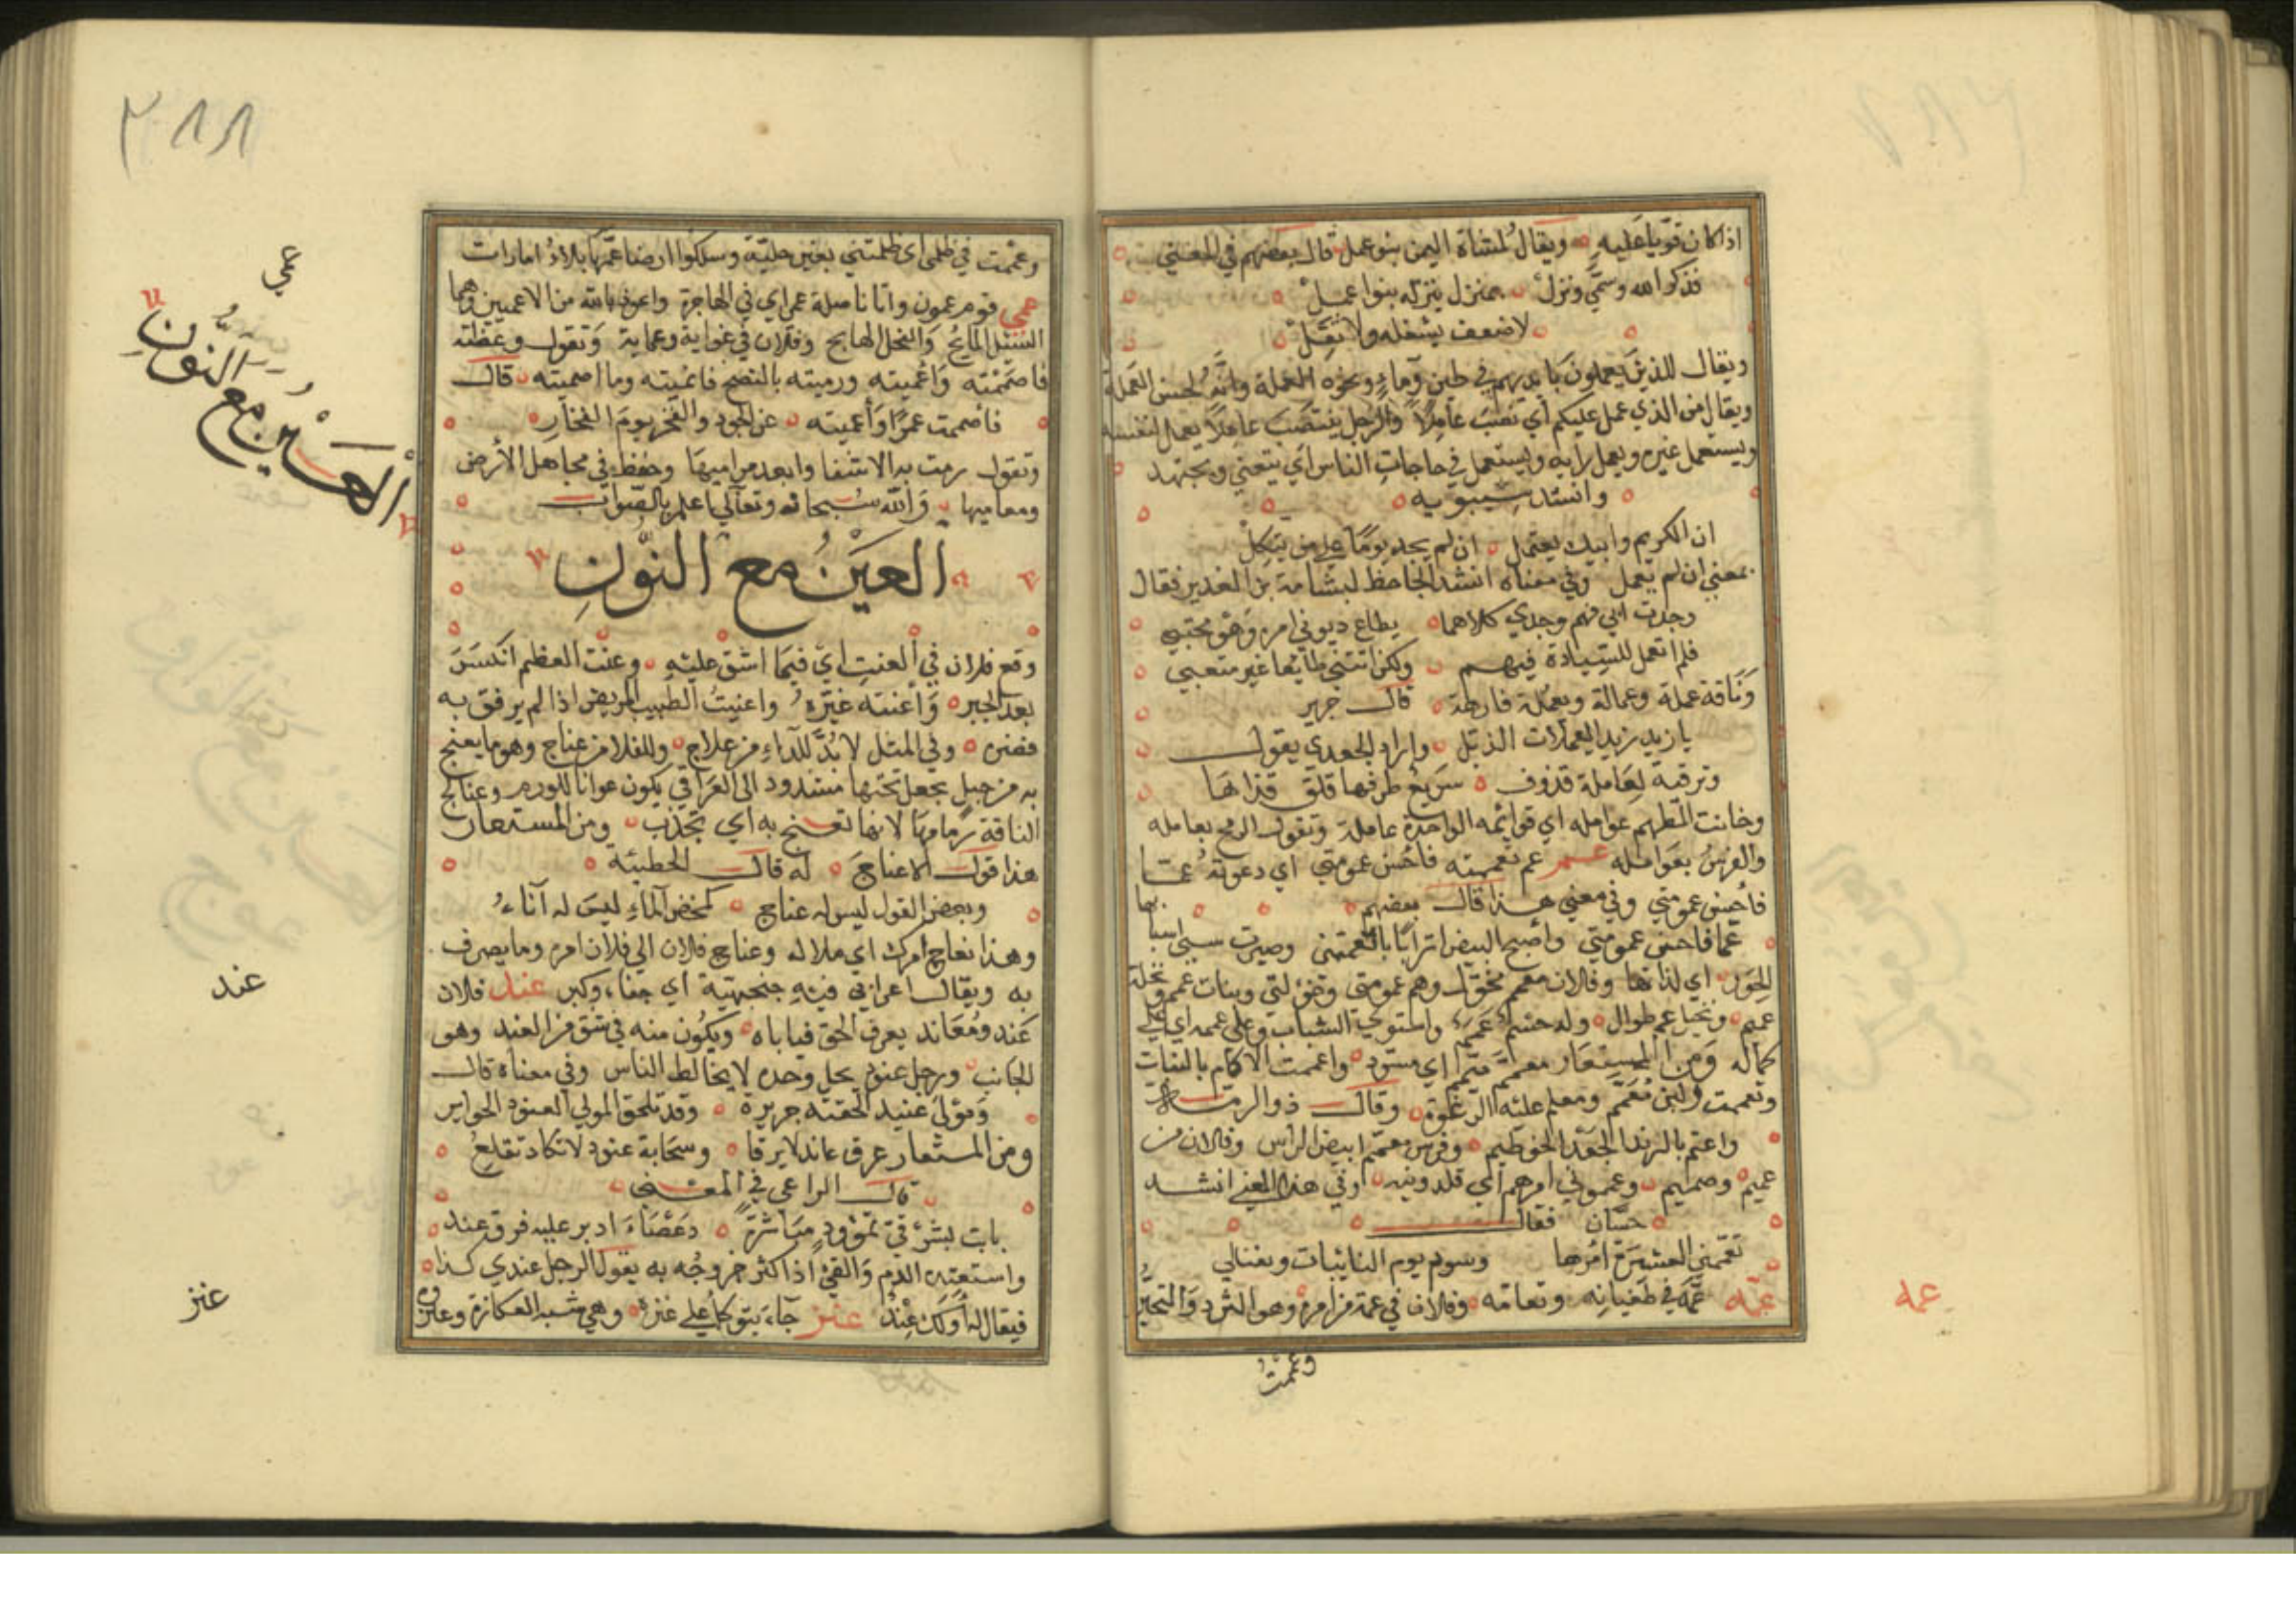 اذا كان قويا عليه ويقال لمشاة اليمن بنو عمل قال بعضهم في المعني
فذكر الله وسمي ونزل بمنزل ينزله بنوا عمل
لا ضعف يشغله ولا ثقل
ويقال للذين يعملون بايديهم في طين وماء ونحوه العملة وانه لحسن العملة
ويقال من الذي عمل عليكم اي نصب عاملا والرجل يعمل لنفسه
ويستعمل غيره ويعمل رايه ويستعمل في حاجات الناس اي يتعني ويجتهد
وانشد سيبويه
ان الكريم وابيك يعتمل ان لم يجد يوما علي من يتكل
بمعني ان لم يعمل وفي معناه انشد الجاحظ لبشامة بن الغدير فقال
وجدت ابي فيهم وجدي كلاهما يطاع ويوتي امره وهو محتبي
فلم اتعمل للسيادة فيهم ولكن اتتني طايعا غير متعبي
وناقة عملة وعمالة ويعملة فارهة قال جرير
يا زيد زيد اليعملات الذبل واراد الجعدي بقول
وترقبه بعاملة قذوف سريع طرفها قلق قذاها
وخانت المطهم عوامله اي قوايمه الواحدة عاملة وتقول الرمح بعامله
والفرس بعوامله عمم عم تعممته فاحسن عمومتي اي دعوته عما
فاحسن عمومتي وفي معني هذا قال بعضهم
عما فاحسن عمومتي واصبح البيض اترابا بالتعممنني وصرت سبي اسبابها
الحور اي لذاتها وفلان معم مخول وهم عمومتي وخوولتي وبنات عم ونخلة
عميم ونخيل عم طوال وله جسم عمم واستوي الشباب وعلى عممه اي علي
كماله ومن المستعار معمم متمم اي مسود واعتمت الاكام بالنبات
وتعممت ولبن معمم ومعتم علته الرغوة وقال ذو الرمة
واعتم بالزبد الجعد الخراطيم وفرس معمم ابيض الراس وفلان من
عميم وصميم وعمموني امرهم اي قلدونيه وفي هذا المعني انشد
حسان فقال
تعممني العشيرة امرها وسودي يوم النايبات ويعتالي
عمه عمه في طغيانه وتعامه وفلان في عمه من امره وهو التردد والتحير
عمه
وعمهت
٣٨٨
وعمهت في ظلمي اي ظلمتني بغير جلية وسلكوا ارضا عمهاء بلا اذ امارات
عمي قوم عمون واتانا صكة عمي اي في الهاجرة واعوذ بالله من الاعميين وهما
السيل المايج والفحل الهايج وفلان في غواية وعماية وتقول وعظته
فاصممته واعميته ورميته بالنصح فاعميته وما اصميته قال
فاصممت عمرا واعميته عن الجود والفخر يوم الفخار
وتقول رمت به الاشفا وابعد مراميها وحفظ في مجاهل الارض
ومعاميها والله سبحانه وتعالي اعلم بالصواب
العين مع النون
وقع فلان في العنت اي فيما اشق عليه وعنت العظم انكسر
بعد الجبر واعنته غيره واعنت الطبيب المريض اذا لم يرفق به
فضره وفي المثل لا بد للداء من علاج وللدلاء من عناج وهو ما يعنج
به من حبل يجعل تحتها مشدود الى العراقي يكون عوانا للوذم وعناج
الناقة زمامها لانها تعنج به اي تجذب ومن المستعار
هذا قول لا عناج له قال الحطيئة
وبعض القول ليس له عناج كمخض الماء ليس له آتاء
وهذا عناج امرك اي ملاكه وعناج فلان الي فلان امره وما يصرف
به ويقال اعرابي فيه عنجهية اي جفاء وكبر عند فلان
عند ومعاند يعرف الحق فياباه ويكون منه في شق من العند وهو
الجانب ورجل عنود يحل وحده لا يخالط الناس وفي معناه قال
ومولى عنيد الحقته جريرة وقد تلحق المولى العنود الجراير
ومن المستعار عرق عاند لا يرقا وسحابة عنود لا تكاد تقلع
قال الراعي في المعني
باتت بشرقي يموود مباشرة دعصاء ادبر عليه فرق عند
واستعند الدم والقيء اذا كثر خروجه به يقول الرجل عندي كذا
فيقال له اولك عند عنز جاء يتوكا علي عنزة وهي شبه العكازة وعنزوه
عمي
العين مع النون
عند
عنز